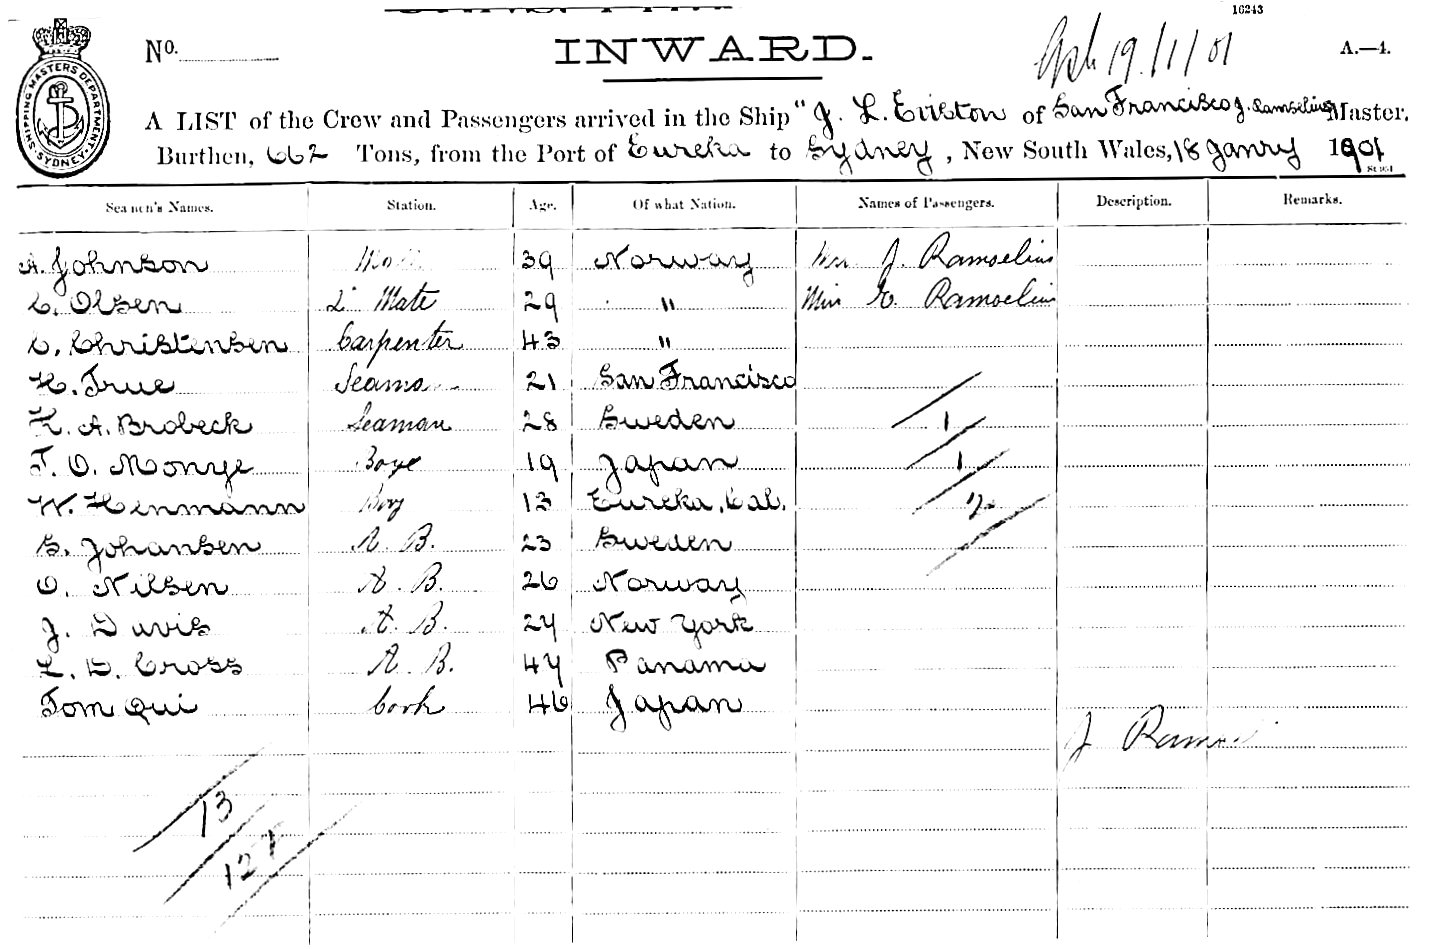 16243
No.
INWARD.
19/1/01
A.—4.
SHIPPING MASTERS DEPARTMENT SYDNEY
A LIST of the Crew and Passengers arrived in the Ship "J. L. Eviston of San Francisco J. Ramselius Master.
Burthen, 662 Tons, from the Port of Eureka to Sydney, New South Wales, 18 Janry 1901
Seamen's Names. Station. Age. Of what Nation. Names of Passengers. Description. Remarks.
A. Johnson Mate 39 Norway Mrs J. Ramselius
C. Olsen 2d Mate 29 " Miss E. Ramselius
C. Christensen Carpenter 43 "
H. True Seaman 21 San Francisco
K. A. Brobeck Seaman 28 Sweden 1
T. O. Monye Boye 19 Japan 1
W. Henmann Boy 13 Eureka, Cal. 2
S. Johansen A. B. 23 Sweden
O. Nilsen A. B. 26 Norway
J. Davis A. B. 24 New York
L. D. Cross A. B. 44 Panama
Tom Qui Cook 46 Japan
J Ramselius
13
12